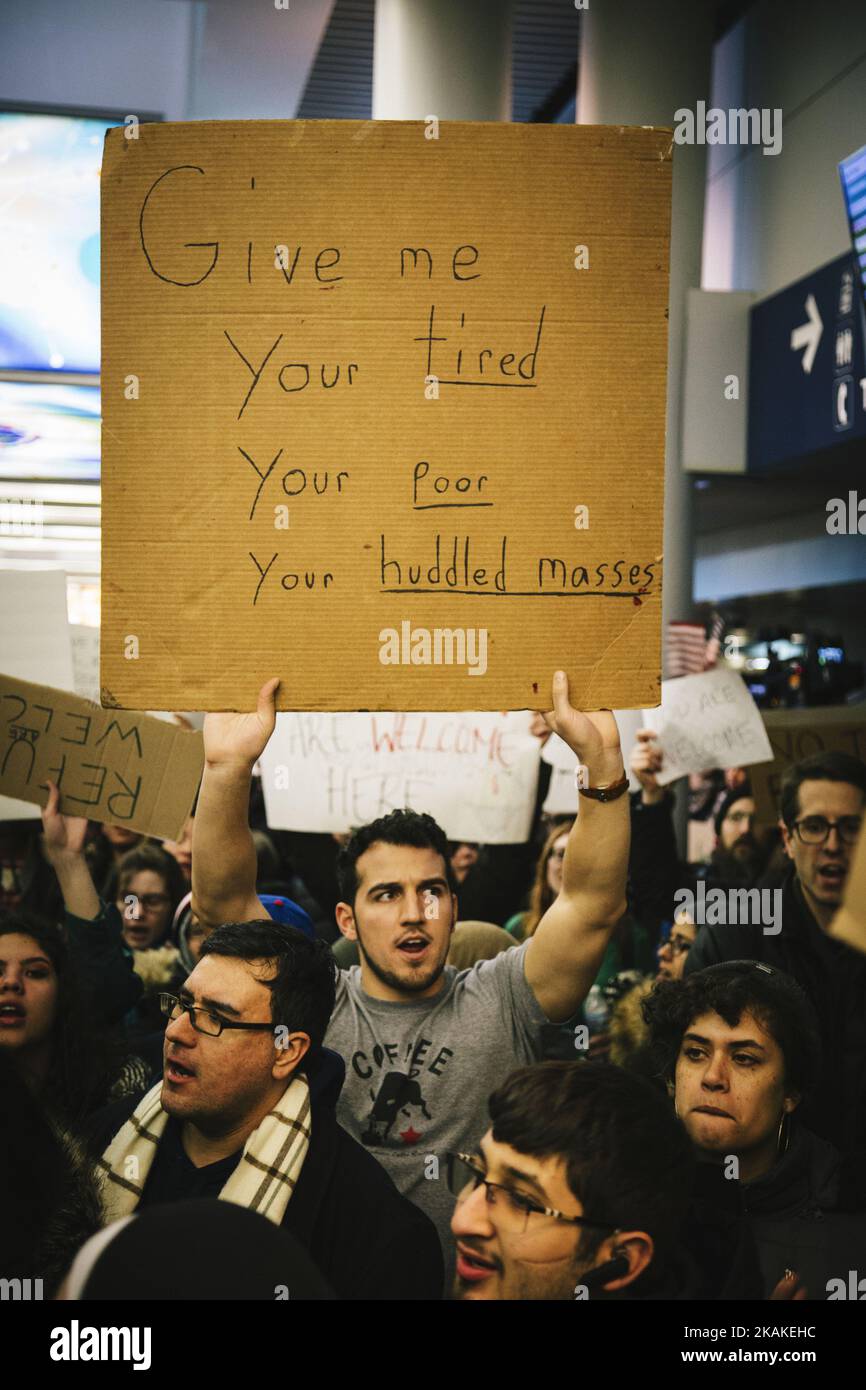 Give me
Your tired
Your poor
Your huddled masses
WELC
ARE
REFU
ARE WELCOME
HERE
YOU ARE
WELCOME
NO
COFFEE
alamy
alamy
Image ID: 2KAKEHC
www.alamy.com